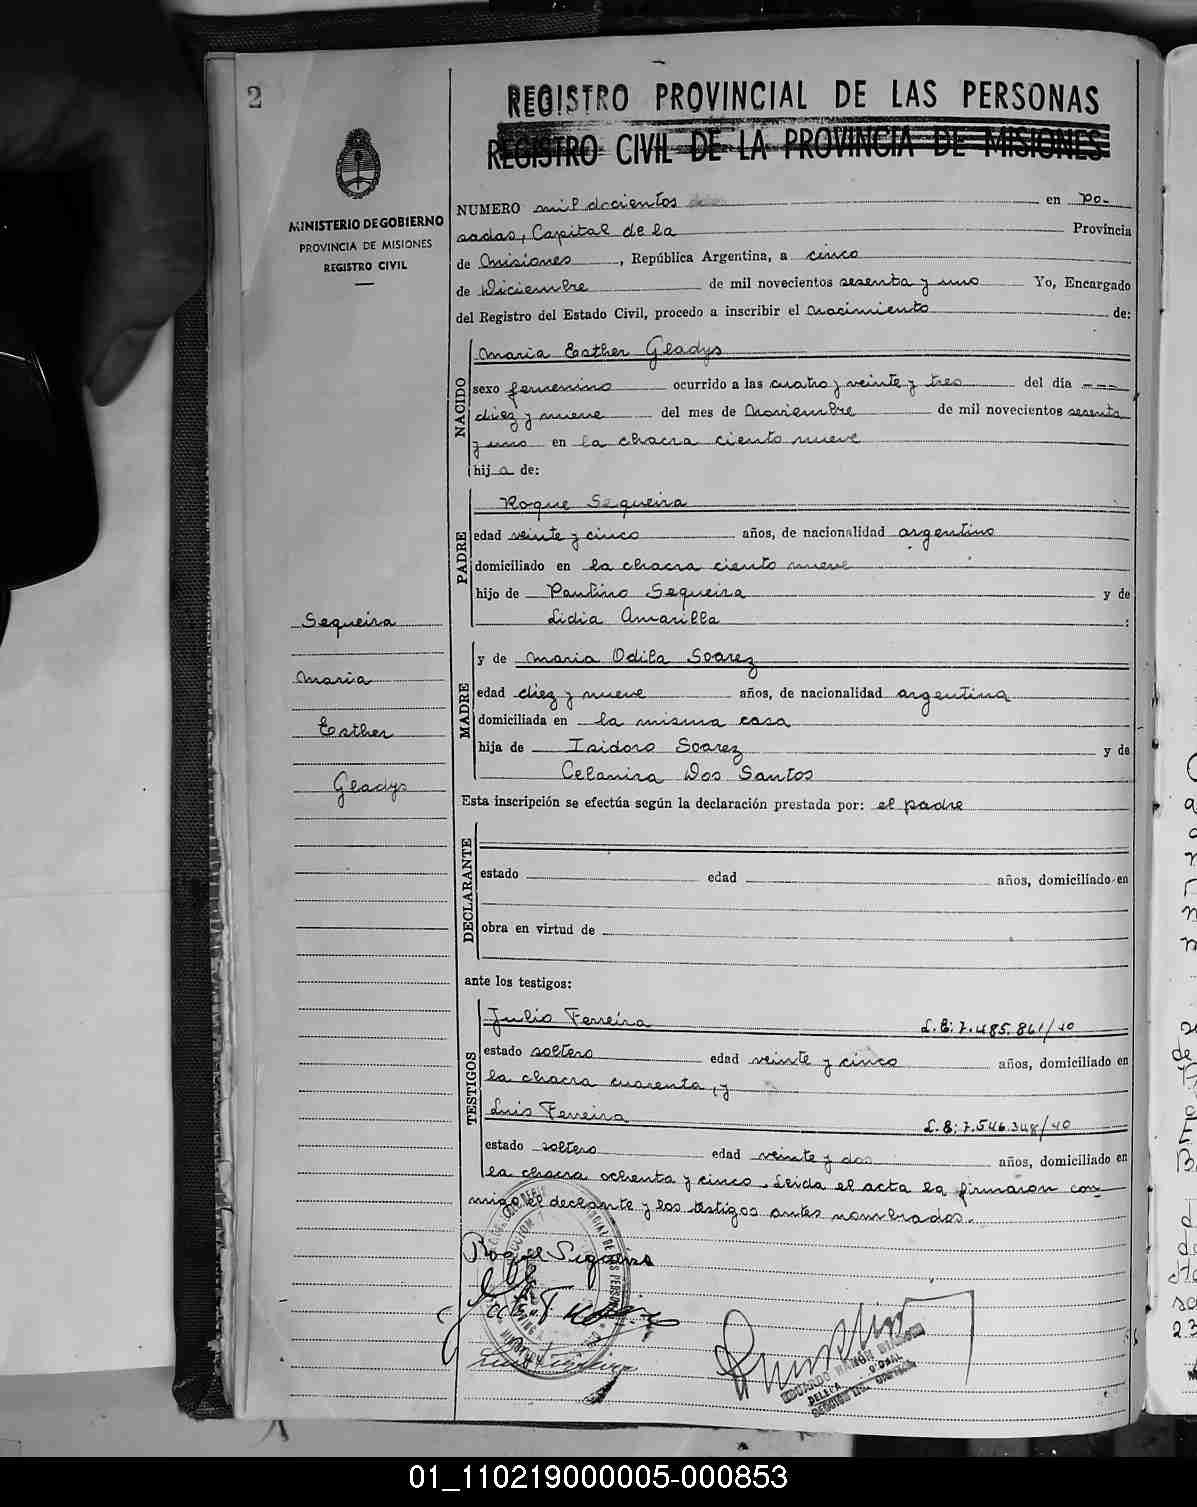 2
REGISTRO PROVINCIAL DE LAS PERSONAS
REGISTRO CIVIL DE LA PROVINCIA DE MISIONES
MINISTERIO DE GOBIERNO
PROVINCIA DE MISIONES
REGISTRO CIVIL
NUMERO mil docientos en Po-
sadas, Capital de la Provincia
de Misiones, República Argentina, a cinco
de Diciembre de mil novecientos sesenta y uno Yo, Encargado
del Registro del Estado Civil, procedo a inscribir el nacimiento de:
NACIDO
Maria Esther Gladys
sexo femenino ocurrido a las cuatro y veinte y tres del día ---
diez y nueve del mes de Noviembre de mil novecientos sesenta
y uno en la chacra ciento nueve
hija de:
PADRE
Roque Sequeira
edad veinte y cinco años, de nacionalidad argentino
domiciliado en la chacra ciento nueve
hijo de Paulino Sequeira y de
Lidia Amarilla :
Sequeira
Maria
Esther
Gladys
MADRE
y de Maria Odila Soarez
edad diez y nueve años, de nacionalidad argentina
domiciliada en la misma casa
hija de Isidoro Soarez y de
Celanira Dos Santos
Esta inscripción se efectúa según la declaración prestada por: el padre
DECLARANTE
estado edad años, domiciliado en
obra en virtud de
ante los testigos:
TESTIGOS
Julio Ferreira L.E: 7.485.861/40
estado soltero edad veinte y cinco años, domiciliado en
la chacra cuarenta, y
Luis Ferreira L.E: 7.546.348/40
estado soltero edad veinte y dos años, domiciliado en
la chacra ochenta y cinco. Leida el acta la firmaron con-
migo el declante y los testigos antes nombrados.
Roque Sequeira
01_110219000005-000853